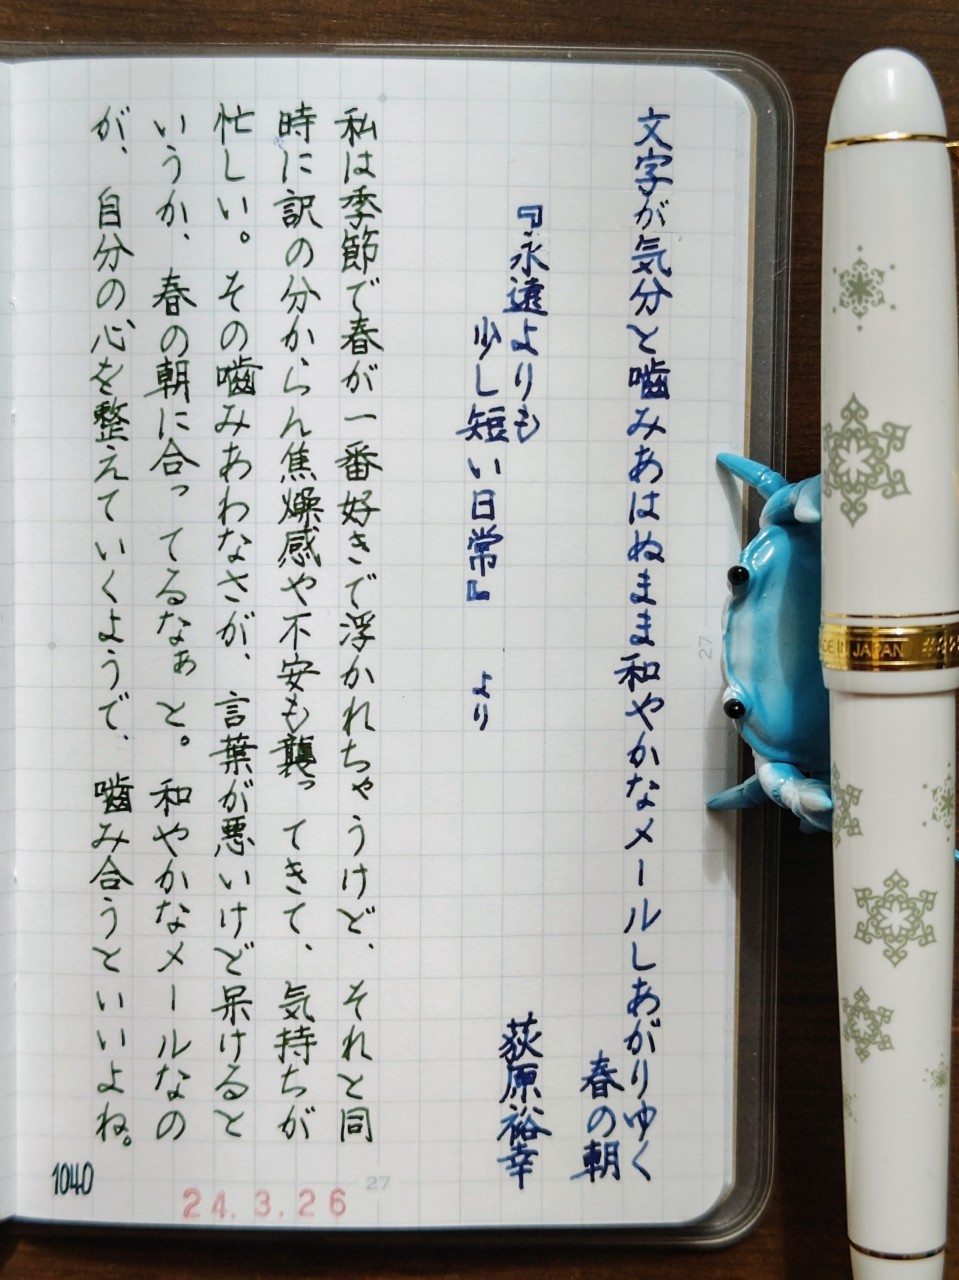 文字が気分と噛みあはぬまま和やかなメールしあがりゆく
春の朝
荻原裕幸
『永遠よりも
少し短い日常』 より
私は季節で春が一番好きで浮かれちゃうけど、それと同
時に訳の分からん焦燥感や不安も襲ってきて、気持ちが
忙しい。その噛みあわなさが、言葉が悪いけど呆けると
いうか、春の朝に合ってるなぁと。和やかなメールなの
が、自分の心を整えていくようで、噛み合うといいよね。
1040
24.3.26
27
27
DE IN JAPAN